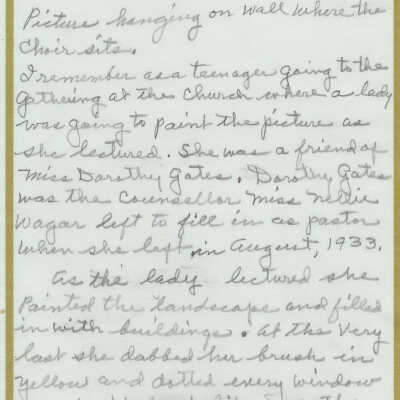 Picture hanging on wall where the
Choir sits.
I remember as a teenager going to the
gathering at the Church where a lady
was going to paint the picture as
she lectured. She was a friend of
Miss Dorothy Gates. Dorothy Gates
was the Counsellor Miss Nellie
Wagar left to fill in as pastor
when she left in August, 1933.
As the lady lectured she
Painted the landscape and filled
in with buildings. At the very
last she dabbed her brush in
yellow and dotted every window